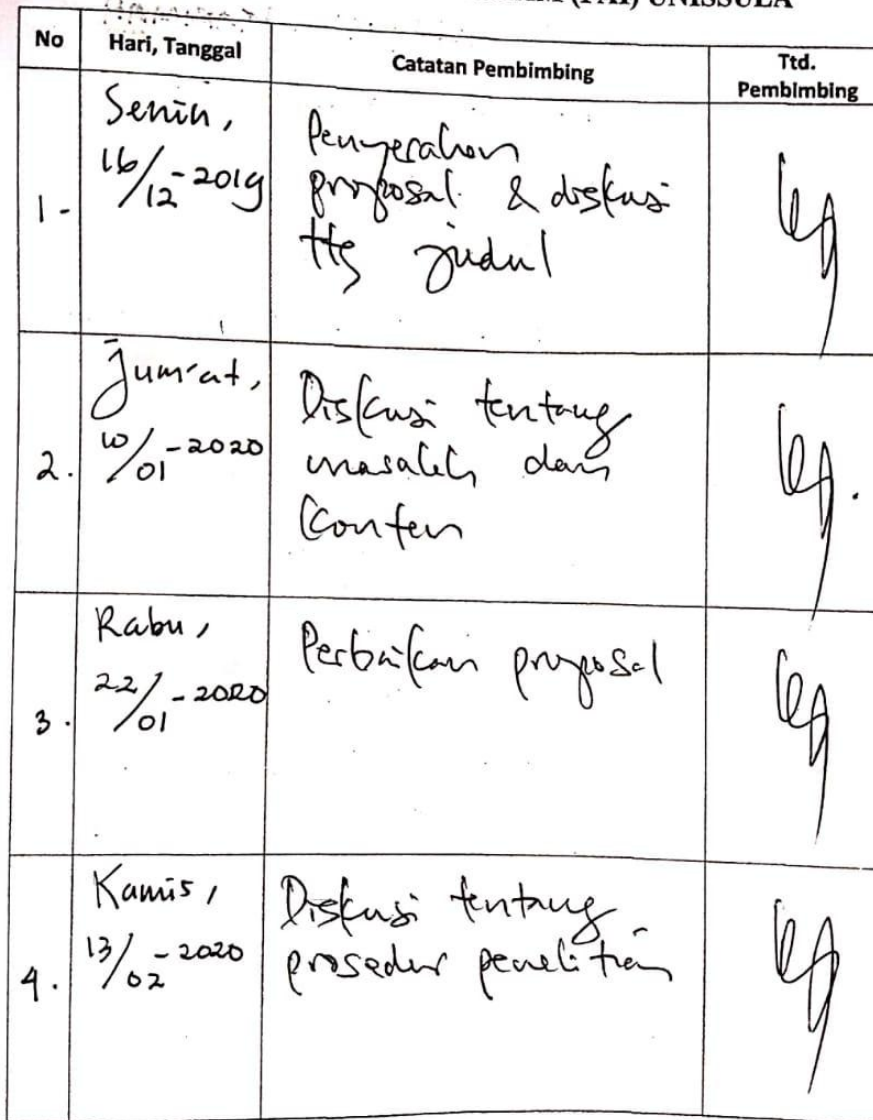 (PAI) UNISSULA
No Hari, Tanggal Catatan Pembimbing Ttd. Pembimbing
1 - Senin, 16/12-2019 Penyerahan proposal & diskusi ttg judul
2. Jum'at, 10/01-2020 Diskusi tentang masalah dan konten
3. Rabu, 22/01-2020 Perbaikan proposal
4. Kamis, 13/02-2020 Diskusi tentang prosedur penelitian